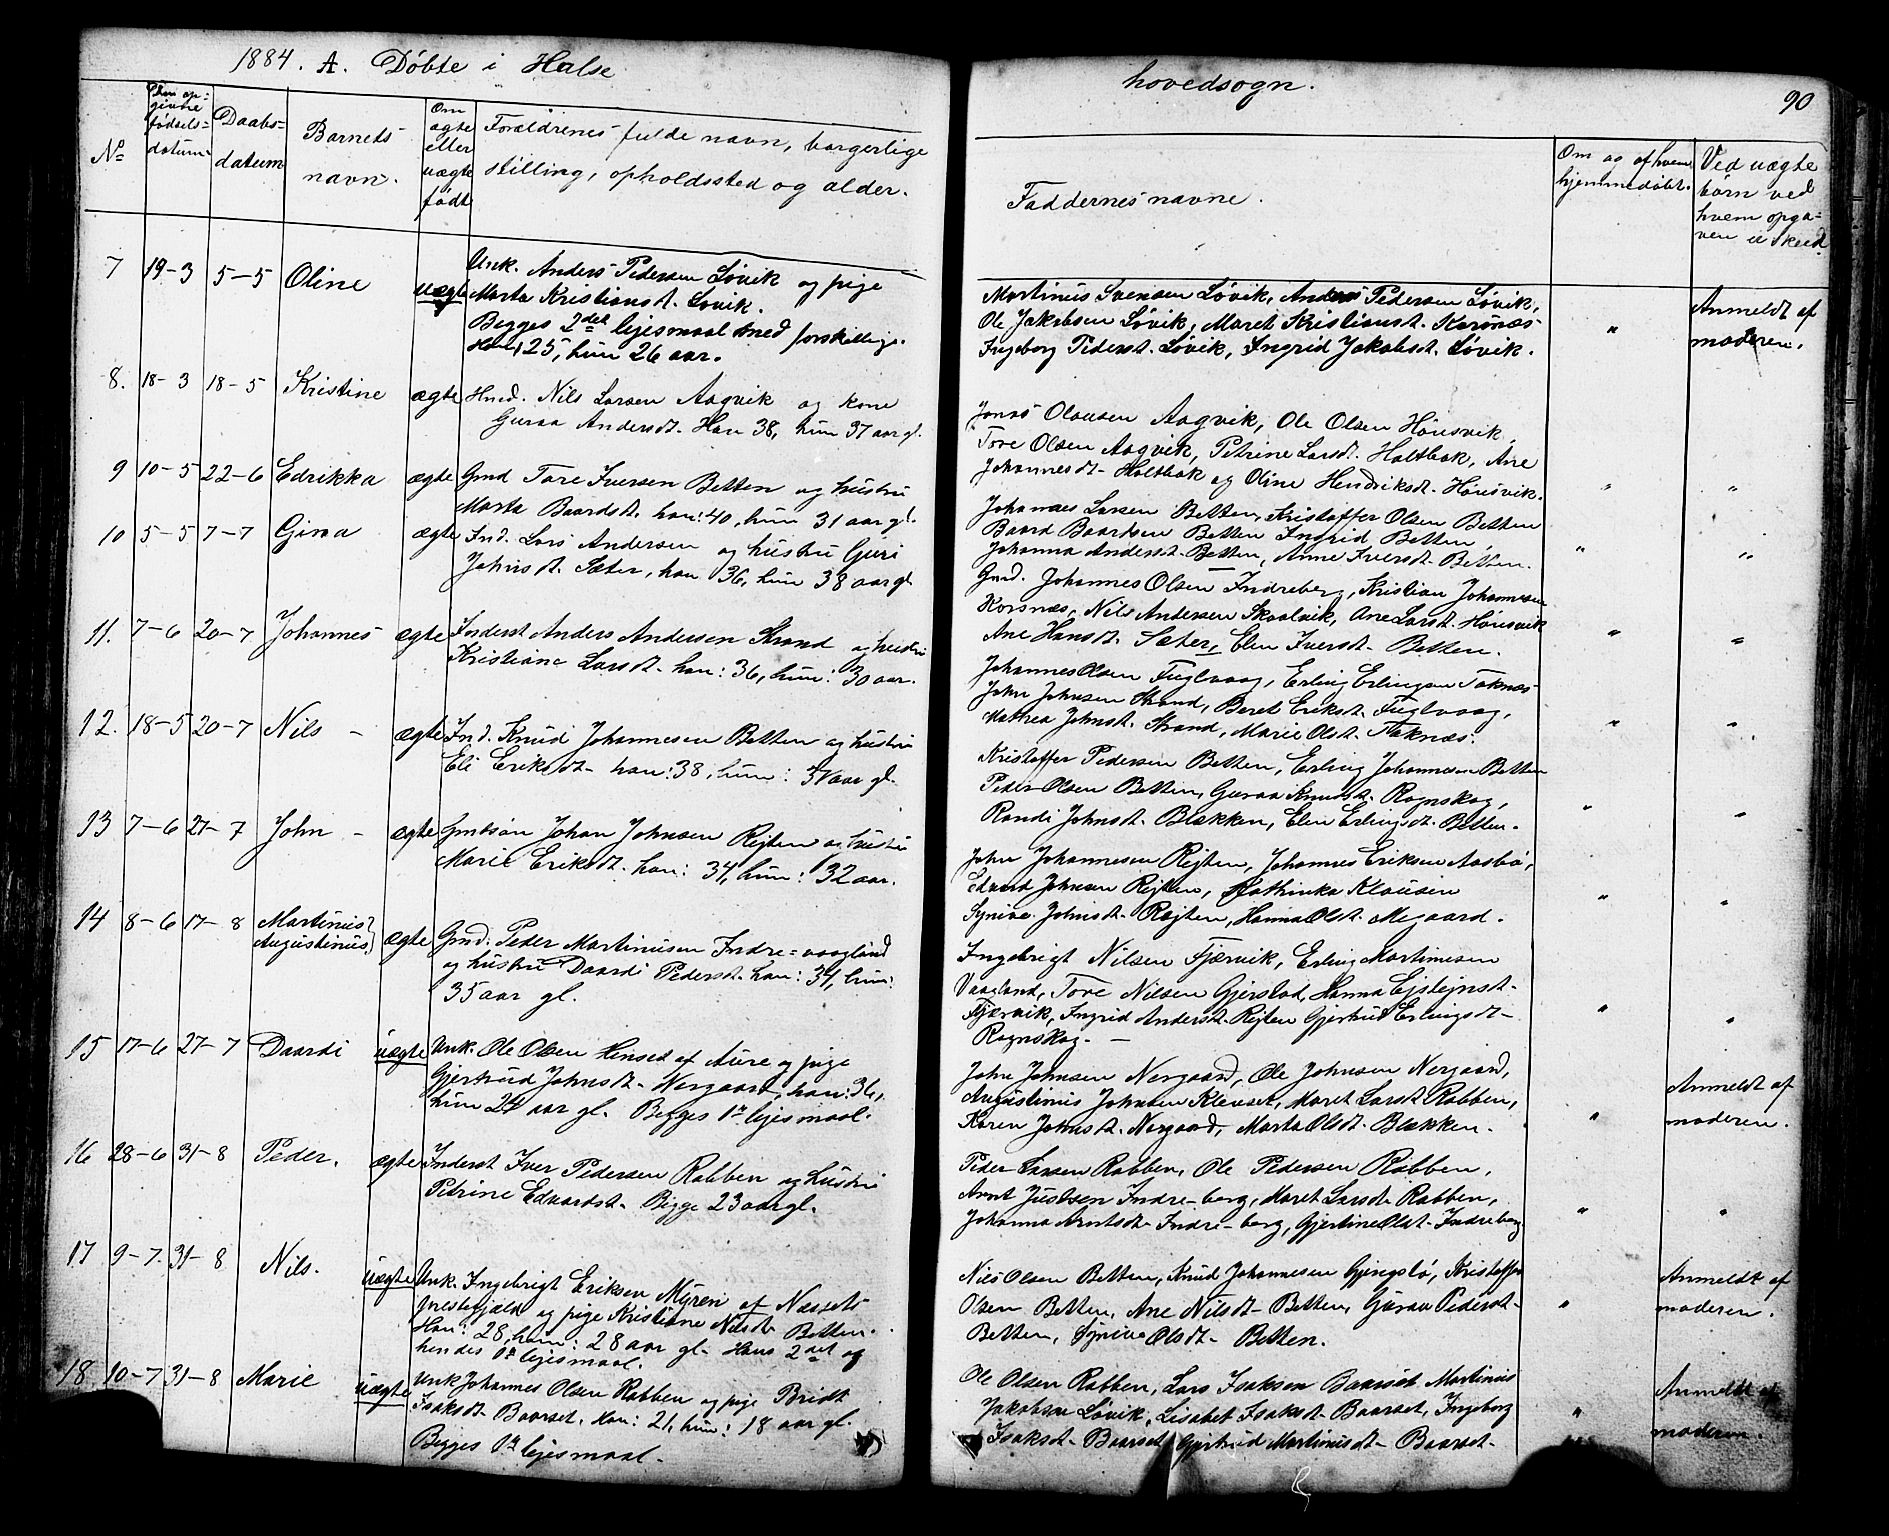 1884. A. Döbte i Halse
hovedsogn.
90
№
Den op-
givne
fødsels-
datum
Daabs-
datum
Barnets
navn.
Om
ægte
eller
uægte
født
Forældrenes fulde navn, borgerlige
stilling, opholdssted og alder.
Faddernes navne.
Om og af hvem
hjemmedøbt.
Ved uægte
børn ved
hvem opga-
ven er skeed
7 19-3 5-5 Oline uægte
Unk. Anders Pedersen Løvik og pige
Marta Kristiansdt. Løvik.
Begges 2det lejesmaal med forskellige.
Han 25, hun 26 aar.
Martinus Svensen Løvik, Anders Pedersen Løvik,
Ole Jakobsen Løvik, Maret Kristiansdt. Korsnæs
Ingeborg Pedersdt. Løvik, Ingrid Jakobsdt. Løvik.
"
Anmeldt af
moderen.
8. 18-3 18-5 Kristine ægte
Hmd. Nils Larsen Aagvik og kone
Guraa Andersdt. Han 38, hun 37 aar gl.
Jonas Olausen Aagvik, Ole Olsen Hønsvik,
Tore Olsen Aagvik, Petrine Larsdt. Holtbak, Ane
Johannesdt. Holtbak og Oline Hendriksdt. Hønsvik.
" "
9 10-5 22-6 Edrikka ægte
Gmd Tore Iversen Betten og hustru
Marta Baardsdt. han: 40, hun 31 aar gl.
Johannes Larsen Betten, Kristoffer Olsen Betten
Baard Baardsen Betten Ingrid Betten,
Johanna Andersdt. Betten, Anne Iversdt. Betten.
" "
10 5-5 7-7 ægte
Ind. Lars Andersen og hustru Guri
Johnsdt. Sæter, han 36, hun 38 aar gl.
Gmd. Johannes Olsen Indreberg, Kristian Johannesen
Korsnæs, Nils Andersen Skaalvik, Ane Larsdt. Hønsvik
Ane Hansdt. Sæter, Elen Iversdt. Betten.
" "
11. 7-6 20-7 Johannes ægte
Inderst Anders Andersen Strand og hustru
Kristiane Larsdt. han: 36, hun: 30 aar.
Johannes Olsen Fuglvaag, Erling Erlingsen Taknæs
John Johnsen Strand, Beret Eriksdt. Fuglvaag,
Mathea Johnsdt. Strand, Marie Olsdt. Taknæs.
" "
12. 18-5 20-7 Nils - ægte
Ind. Knud Johannesen Betten og hustru
Eli Eriksdt. han: 38, hun: 31 aar gl.
Kristoffer Pedersen Betten, Erling Johannesen Betten
Peder Olsen Betten, Guraa Knudsdt. Rognskog,
Randi Johnsdt. Blækken, Elen Erlingsdt. Betten.
" "
13 7-6 27-7 John - ægte
Gmdsøn Johan Johnsen Rejten og hustru
Marie Eriksdt. han: 34, hun: 32 aar.
John Johannesen Rejten, Johannes Eriksen Aasbø,
Edvard Johnsen Rejten, Kathinka Klausen
Synive Johnsdt. Rejten, Hanna Olsdt. Megaard.
" "
14 8-6 17-8 Martinus
Augustinus ægte
Gmd. Peder Martinusen Indre-vaagland
og hustru Daardi Pedersdt. han: 34, hun:
35 aar gl.
Ingebrigt Nilsen Fjærvik, Erling Martinusen
Vaagland, Tore Nilsen Gjerstad, Hanna Ejstejnsdt.
Fjærvik, Ingrid Andersdt. Rejten Gjertrud Erlingsdt.
Rognskog. -
" "
15 17-6 27-7 Daardi uægte
Unk. Ole Olsen Hinset af Aure og pige
Gjertrud Johnsdt. Norgaard, han: 36,
hun 24 aar gl. Begges 1te lejesmaal.
John Johnsen Norgaard, Ole Johnsen Norgaard,
Augustinus Johnsen Klevset, Maret Larsdt. Rabben,
Karen Johnsdt. Norgaard, Marta Olsdt. Blækken.
"
Anmeldt af
moderen.
16 28-6 31-8 Peder. ægte
Inderst Iver Pedersen Rabben og hustru
Petrine Edvardsdt. Begge 23 aar gl.
Peder Larsen Rabben, Ole Pedersen Rabben,
Arnt Justsen Indre-berg, Maret Larsdt. Rabben,
Johanna Arntsdt. Indre-berg, Gjertine Olsdt. Indreberg.
" "
17 9-7. 31-8 Nils. uægte
Unk. Ingebrigt Eriksen Myren af Næssets
prestegjæld og pige Kristiane Nilsdt. Betten.
Han: 28, hun: 28 aar gl. Hans 2det og
hendes 1te lejesmaal.
Nils Olsen Betten, Knud Johannesen Gjengslø, Kristoffer
Olsen Betten, Ane Nilsdt. Betten, Guraa Pedersdt.
Betten, Synive Olsdt. Betten.
"
Anmeldt af
moderen.
18 10-7 31-8 Marie uægte
Unk Johannes Olsen Rabben og pige Bridt
Isaksdt. Baarset. Han: 21, hun: 18 aar gl.
Begges 1te lejesmaal.
Ole Olsen Rabben, Lars Isaksen Baarset, Martinus
Jakobsen Løvik, Lisabet Isaksdt. Baarset, Ingeborg
Isaksdt. Baarset, Gjertrud Martinusdt. Baarset.
"
Anmeldt af
moderen.